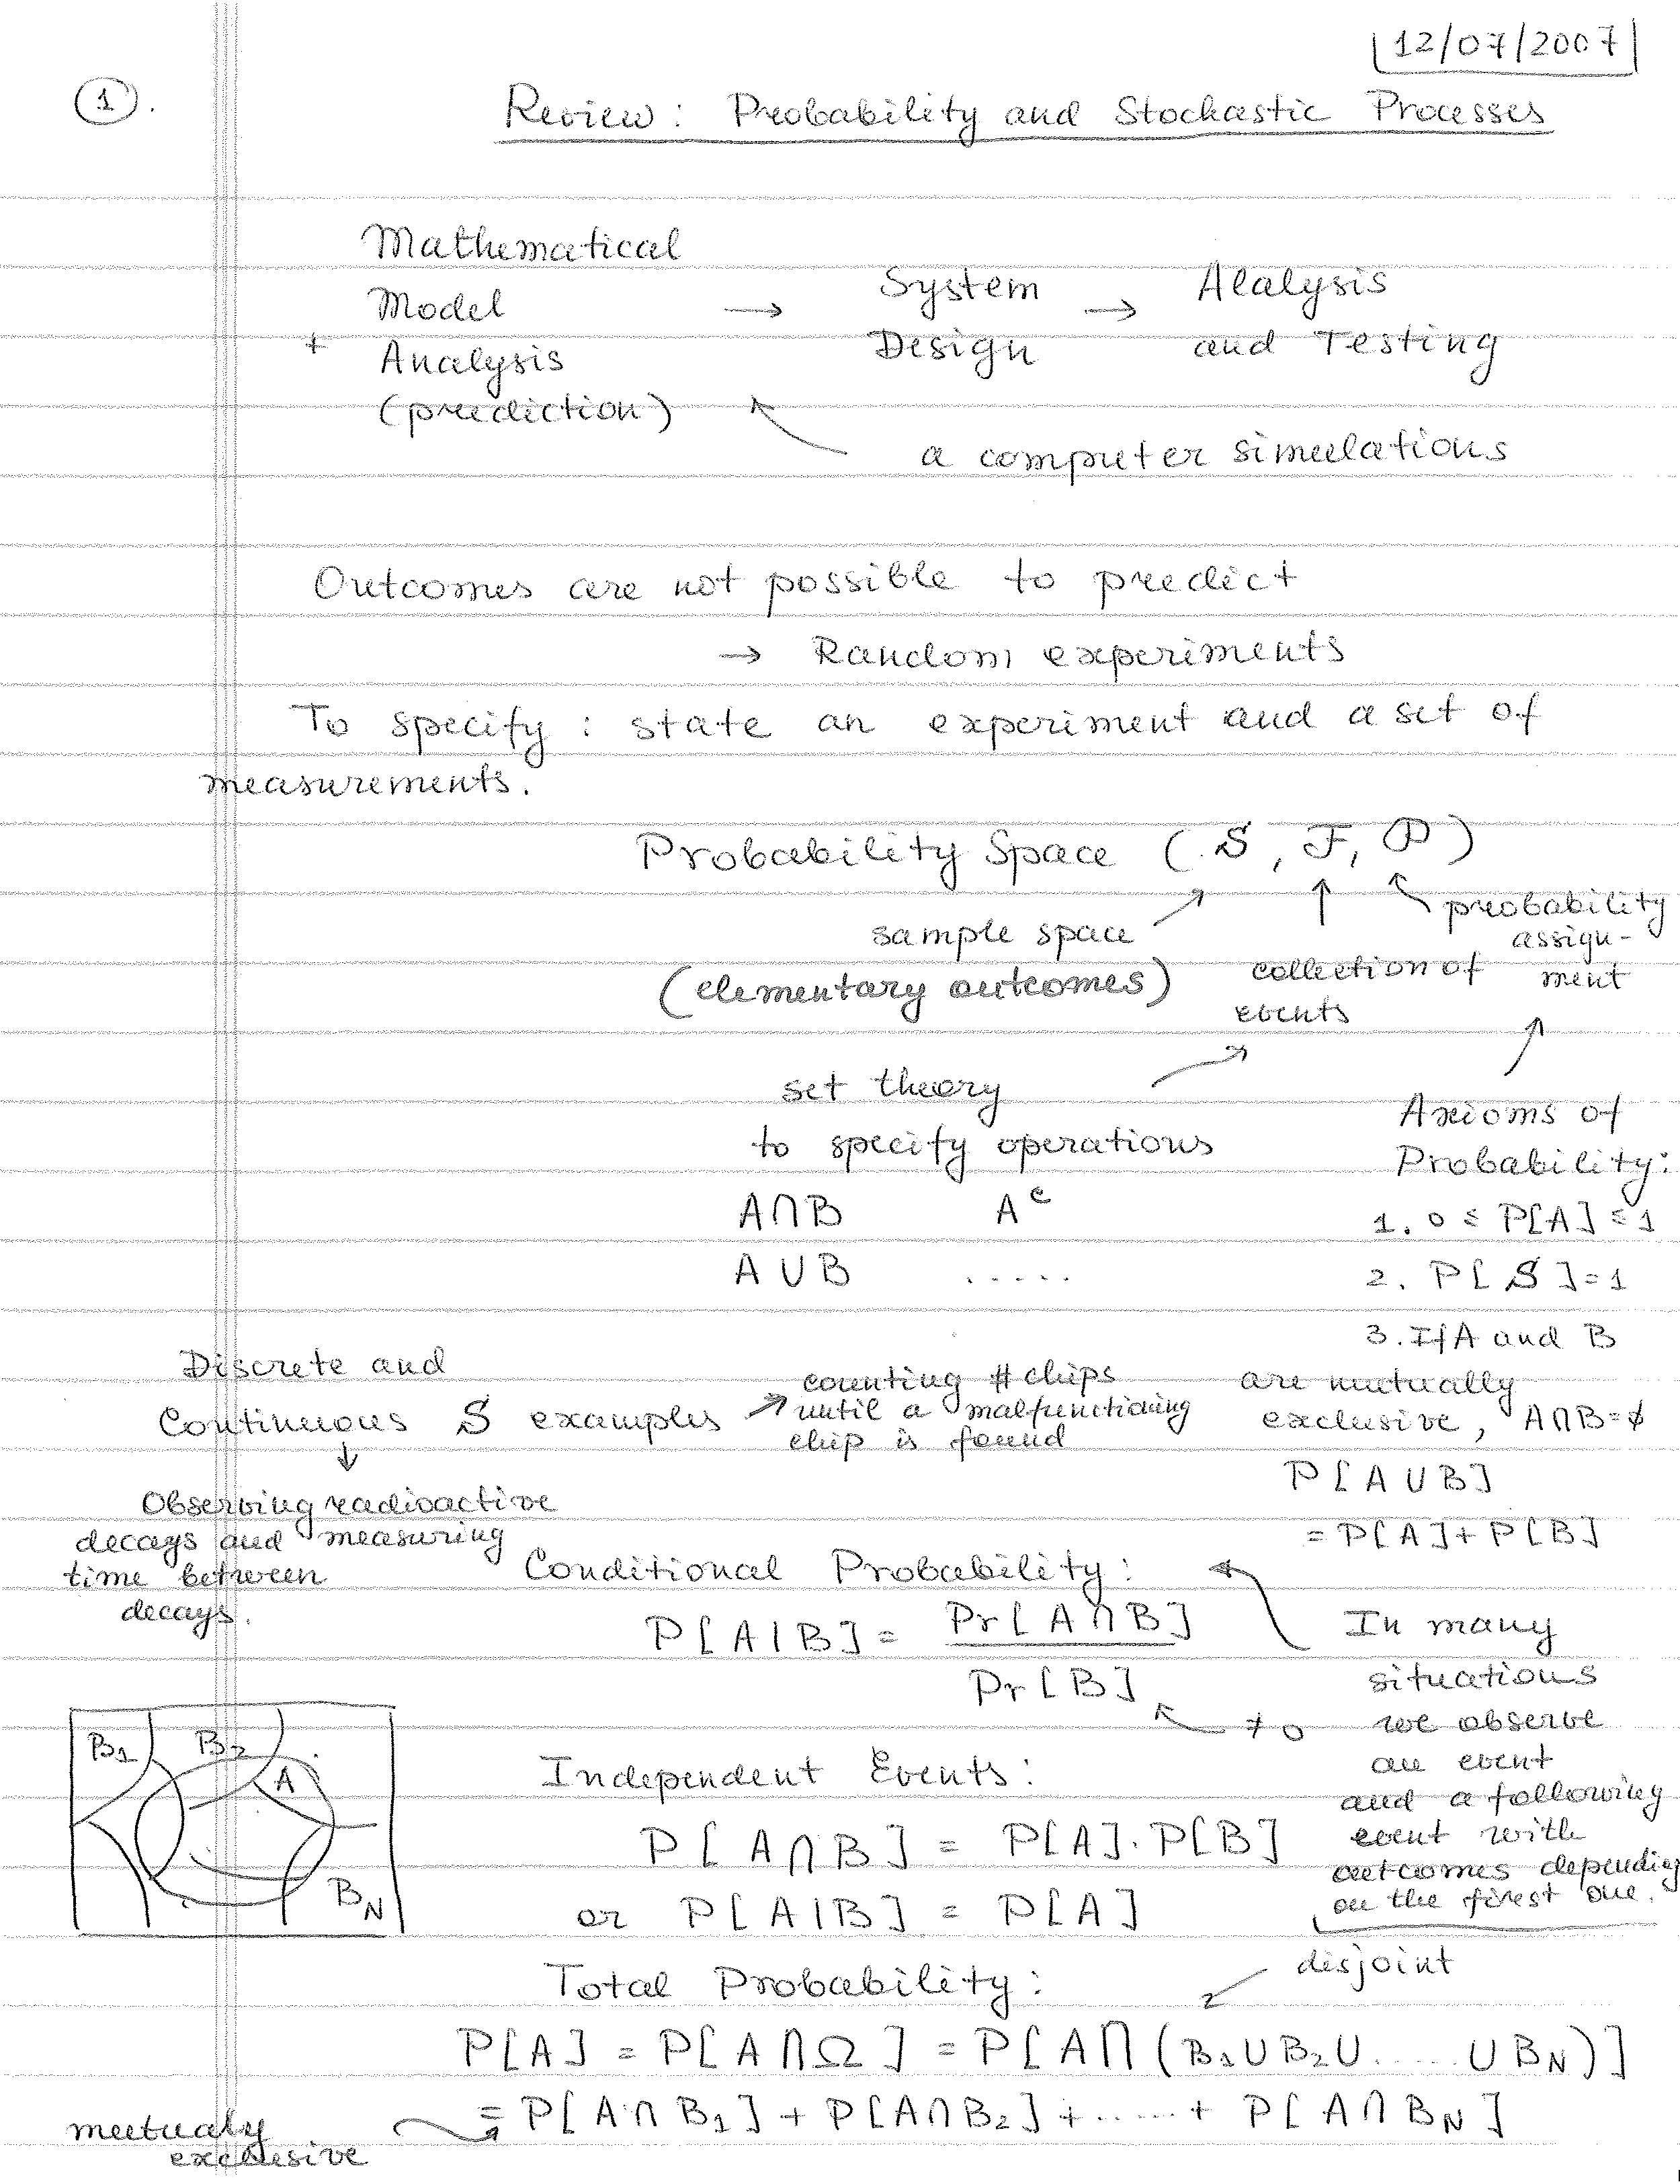 12/07/2007
1.
Review: Probability and Stochastic Processes
Mathematical
Model
+ Analysis
(prediction)
→
System
Design
→
Alalysis
and Testing
a computer simulations
Outcomes are not possible to predict
→ Random experiments
To specify: state an experiment and a set of
measurements.
Probability Space (S, F, P)
sample space
(elementary outcomes)
collection of
events
probability
assign-
ment
set theory
to specify operations
A∩B A^c
A∪B .....
Axioms of
Probability:
1. 0 ≤ P[A] ≤ 1
2. P[S] = 1
3. If A and B
are mutually
exclusive, A∩B=∅
P[A∪B]
= P[A]+P[B]
Discrete and
Continuous S examples
counting # chips
until a malfunctioning
chip is found
Observing radioactive
decays and measuring
time between
decays.
Conditional Probability:
P[A|B] = Pr[A∩B]
Pr[B]
≠0
In many
situations
we observe
an event
and a following
event with
outcomes depending
on the first one.
B1 B2
A
BN
Independent Events:
P[A∩B] = P[A]·P[B]
or P[A|B] = P[A]
Total Probability:
disjoint
P[A] = P[A∩Ω] = P[A∩(B1∪B2∪.....∪BN)]
= P[A∩B1] + P[A∩B2] + ...... + P[A∩BN]
mutualy
exclusive